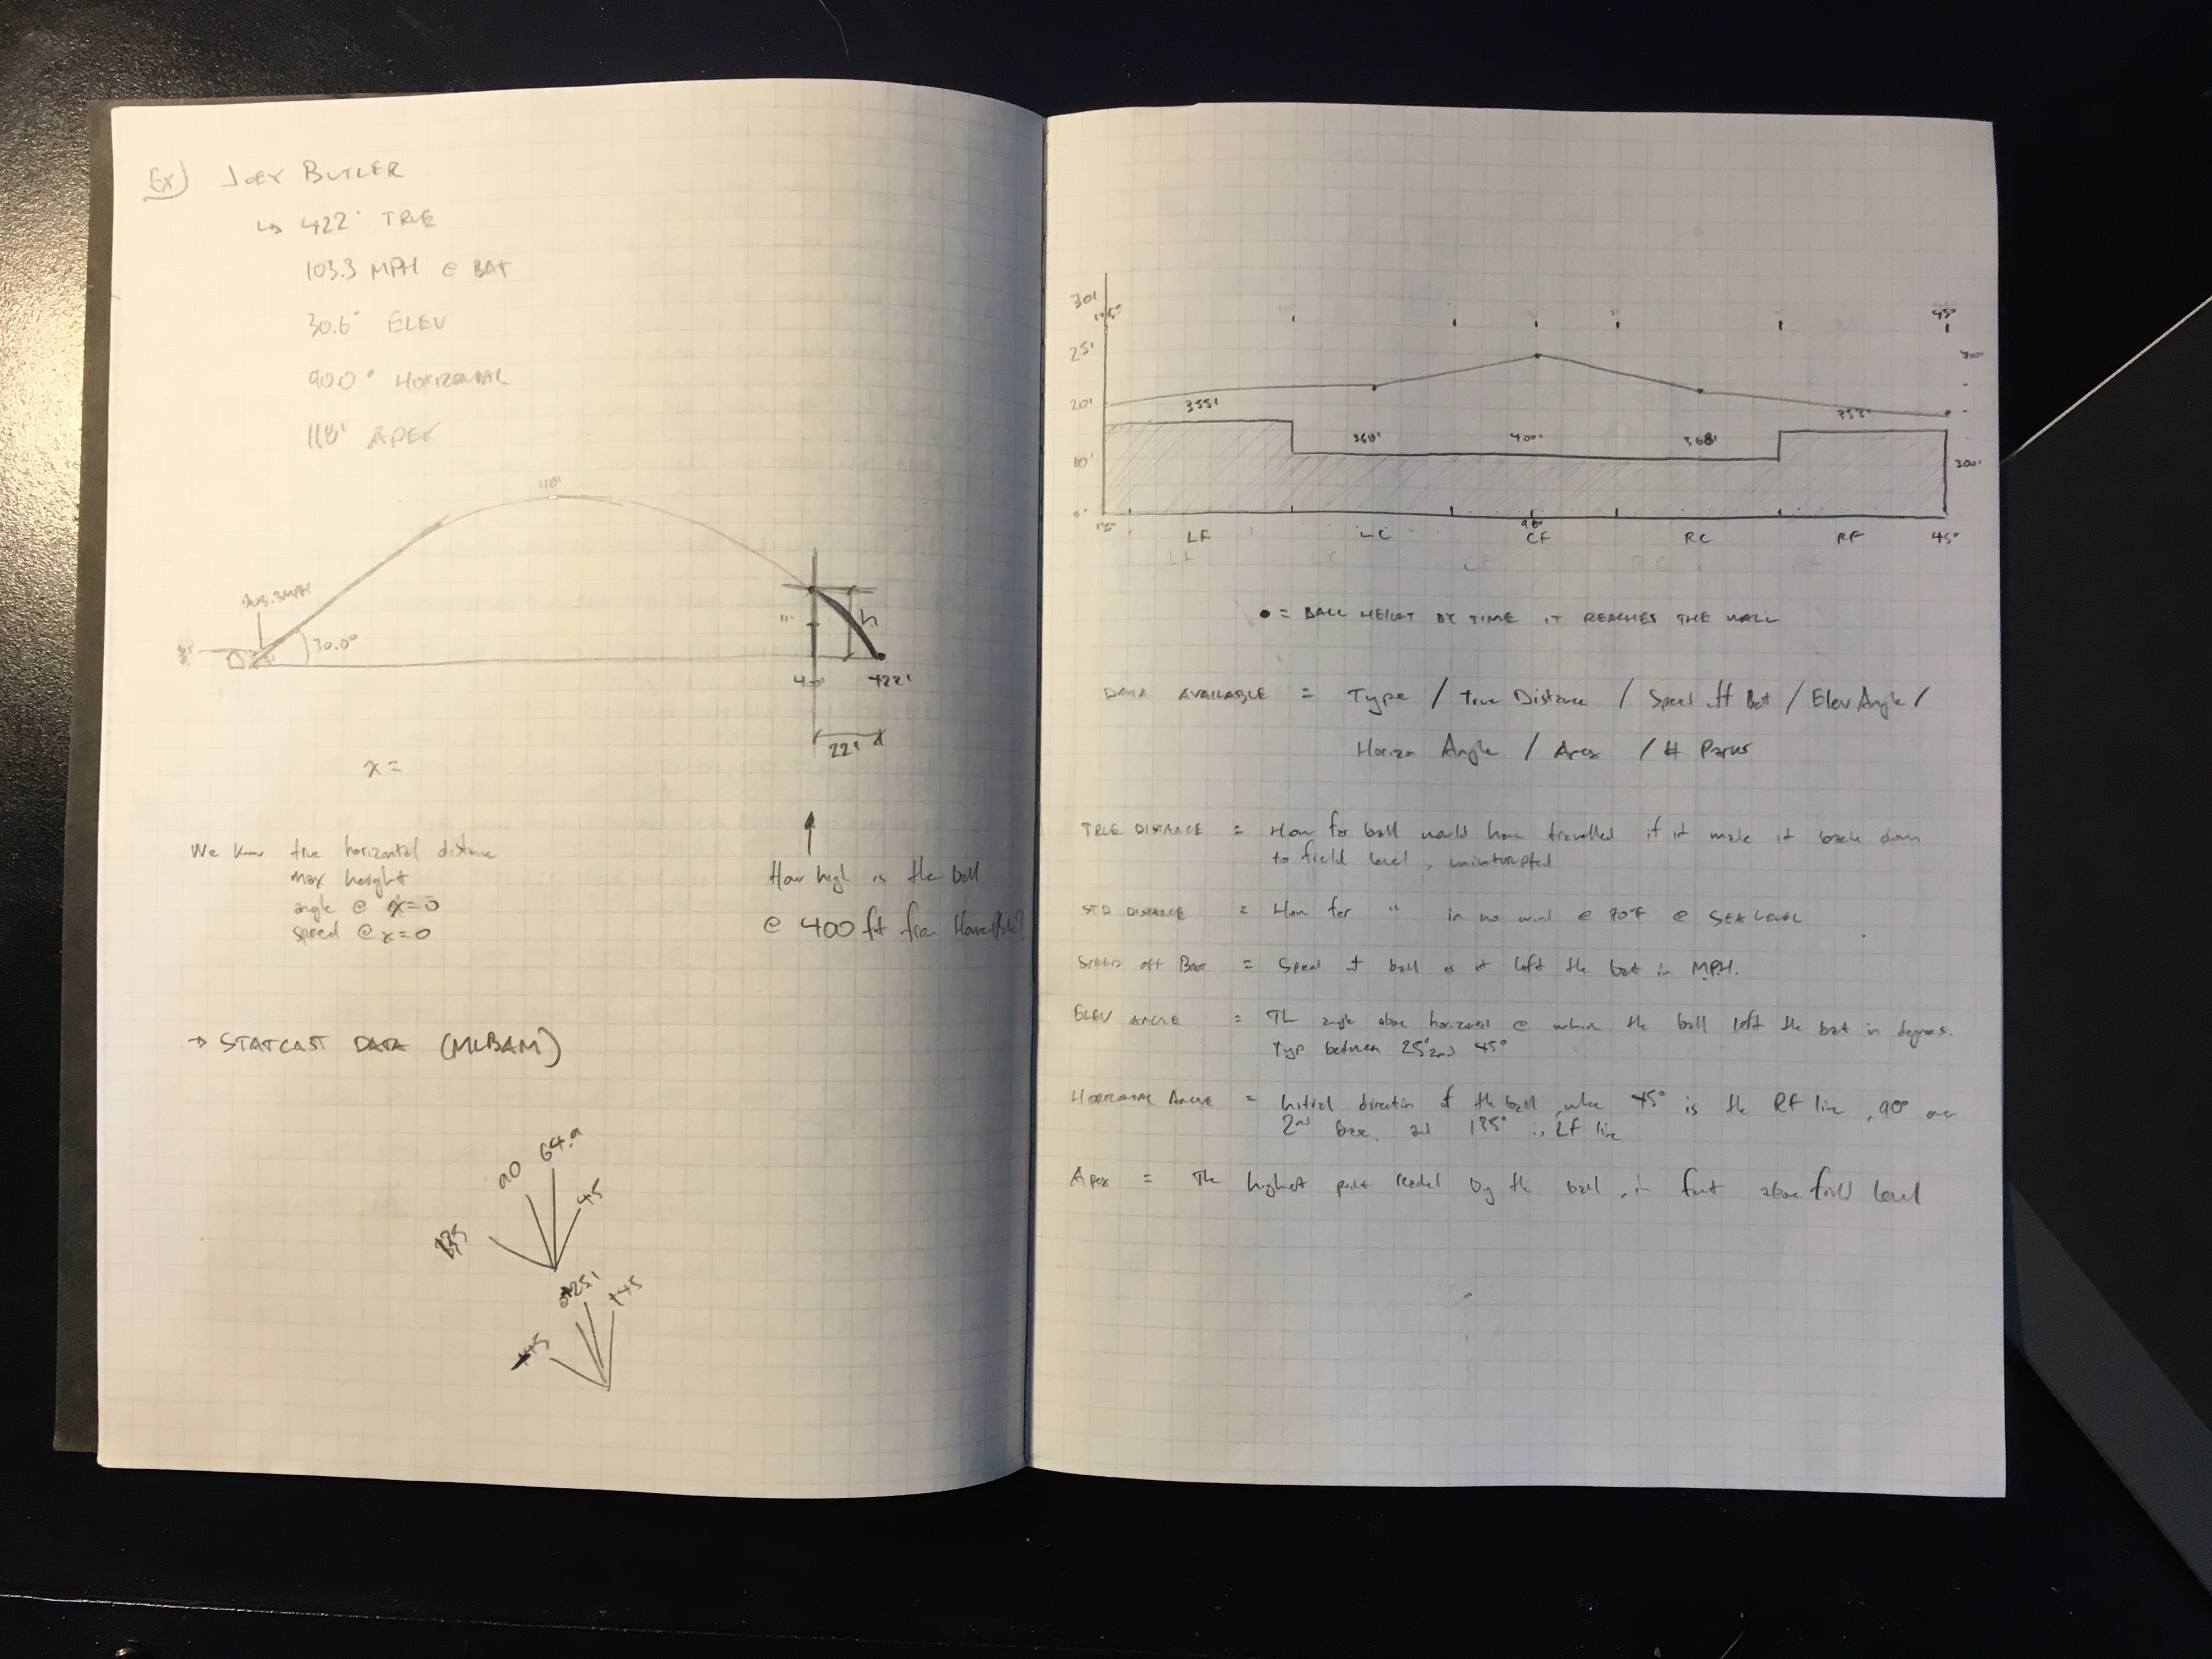 Ex) JOEY BUTLER
↳ 422' TRUE
103.3 MPH @ BAT
30.6° ELEV
90.0° HORIZONTAL
118' APEX
118'
103.3MPH
3'
30.0°
11'
h
400'
422'
22'
x =
We know true horizontal distance
max height
angle @ x=0
speed @ x=0
How high is the ball
@ 400 ft from Home Plate?
→ STATCAST DATA (MLBAM)
135
90
64.9
45
25.1
+45
30'
25'
20'
10'
0'
45°
300'
355'
368'
400'
368'
353'
90°
LF
LC
CF
RC
RF
45°
● = BALL HEIGHT BY TIME IT REACHES THE WALL
DATA AVAILABLE = Type / True Distance / Speed off Bat / Elev Angle /
Horizon Angle / Apex / # Parks
TRUE DISTANCE = How far ball would have travelled if it made it back down
to field level, uninterupted
STD DISTANCE = How far " in no wind @ 70°F @ SEA LEVEL
SPEED off Bat = Speed of ball as it left the bat in MPH.
ELEV ANGLE = The angle above horizontal @ which the ball left the bat in degrees.
Typ between 25° and 45°
HORIZONTAL ANGLE = Initial direction of the ball, where 45° is the RF line, 90° over
2nd base, and 135° is LF line
Apex = The highest point reached by the ball, in feet above field level